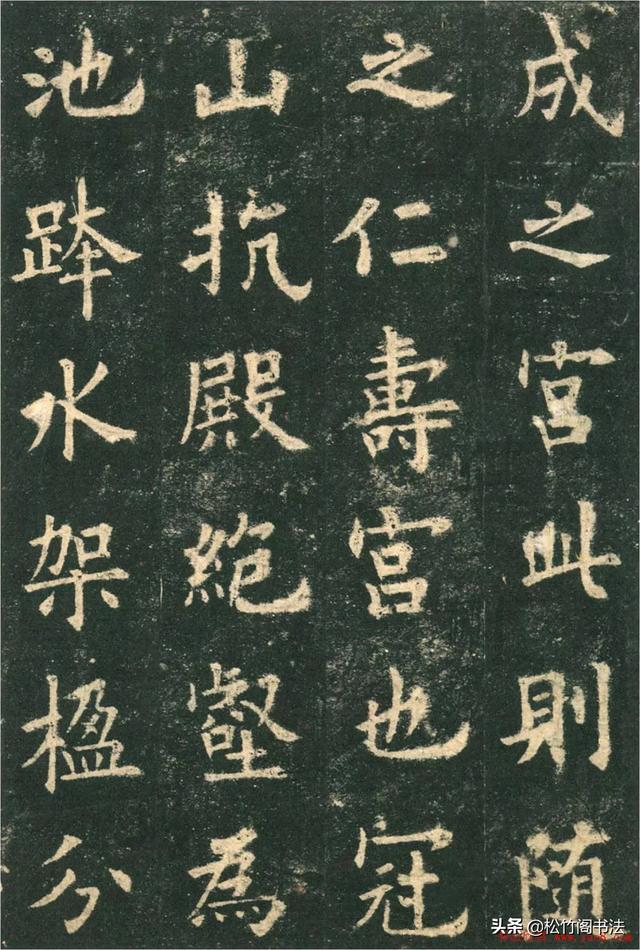 成之宮此則随
之仁壽宮也冠
山抗殿絕壑為
池跨水架楹分
头条 @松竹阁书法